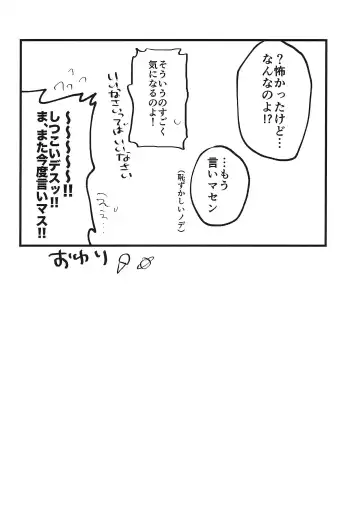 ？怖かったけど…
なんなのよ!?
…もう
言いマセン
（恥ずかしいノデ）
そういうのすごく
気になるのよ！
いいなさいってば
いいなさい
ええ…
～～～～～～!!
しつこいデスッ!!
ま、また今度言いマス!!
おわり